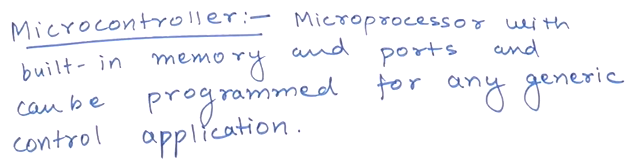 Microcontroller:- Microprocessor with
built-in memory and ports and
can be programmed for any generic
control application.